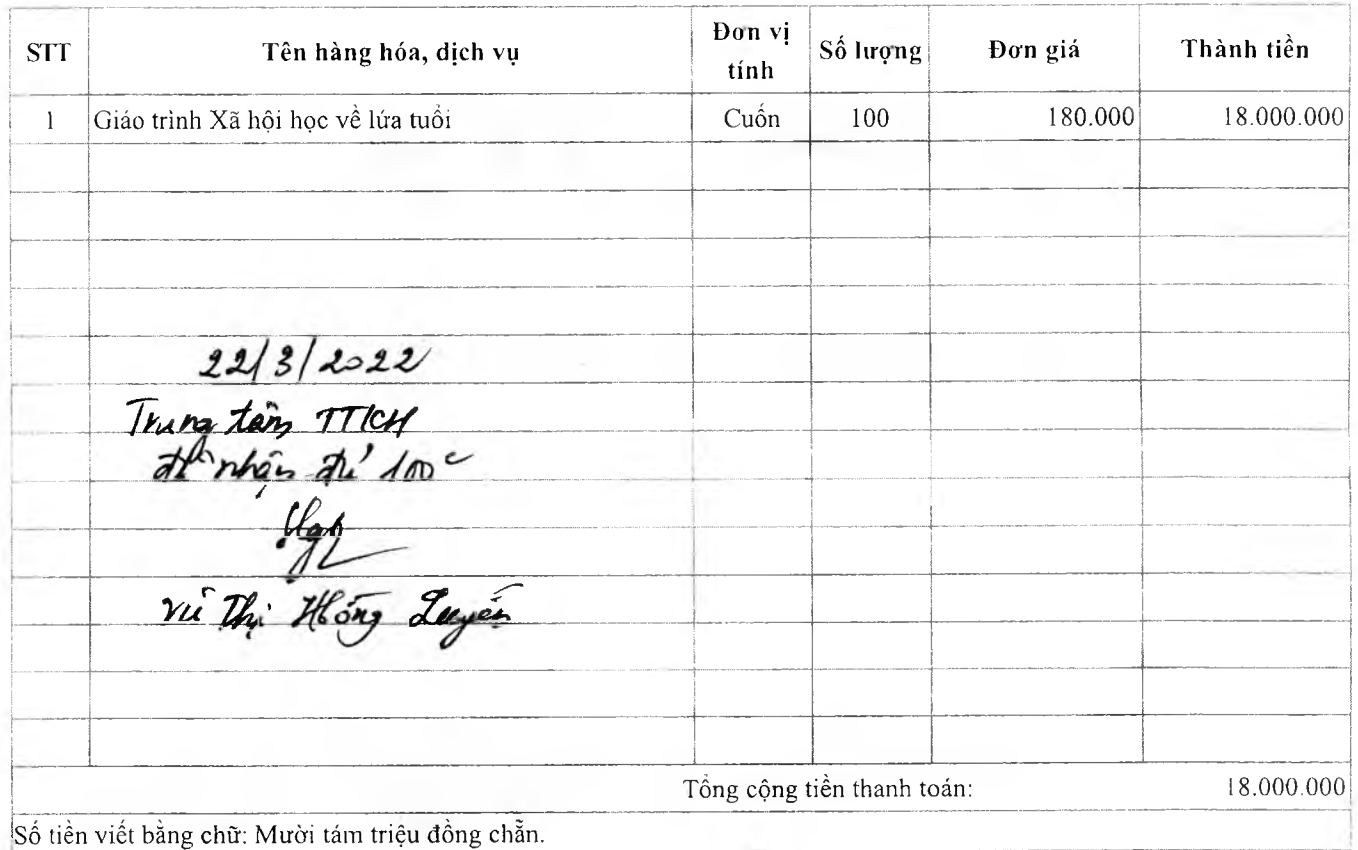 STT Tên hàng hóa, dịch vụ Đơn vị tính Số lượng Đơn giá Thành tiền
1 Giáo trình Xã hội học về lứa tuổi Cuốn 100 180.000 18.000.000
22/3/2022
Trung tâm TT
đã nhận đủ 100c
Vũ Thị Hồng Luyến
Tổng cộng tiền thanh toán: 18.000.000
Số tiền viết bằng chữ: Mười tám triệu đồng chẵn.